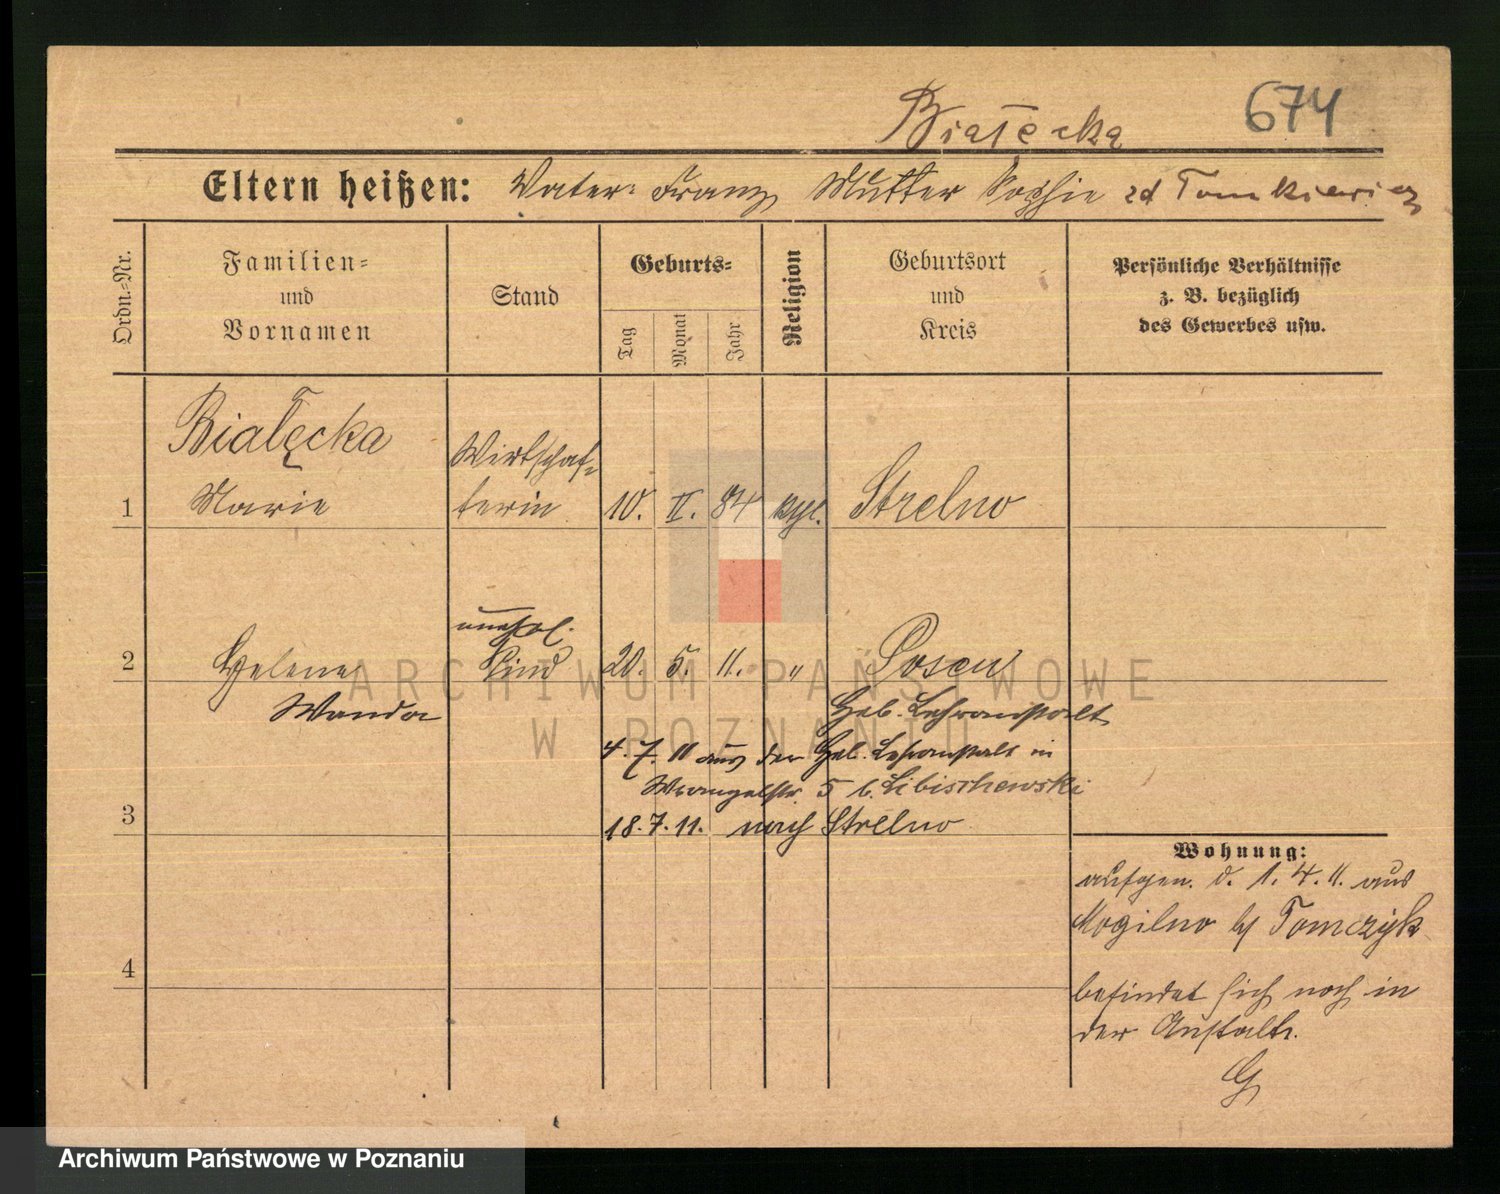 Białęcka 674
Eltern heißen: Vater: Franz Mutter Sophie zd Tomkiewicz
Ordn.-Nr.
Familien-
und
Vornamen
Stand
Geburts-
Tag
Monat
Jahr
Religion
Geburtsort
und
Kreis
Persönliche Verhältnisse
z. B. bezüglich
des Gewerbes usw.
Białęcka Wirtschaf-
1 Marie terin 10. II. 84 Strelno
unehel.
2 Helene Kind 20. 5. 11. " Posen
Wanda Heb. Lehranstalt
4. 7. 11 aus der Heb. Lehranstalt in
Wrangelstr. 5 b. Libischewski
3 18. 7. 11. nach Strelno
Wohnung:
aufgen. d. 1. 4. 11. aus
Mogilno by Tomczyk
4
befindet sich noch in
der Anstalt.
G
ARCHIWUM PAŃSTWOWE
W POZNANIU
Archiwum Państwowe w Poznaniu